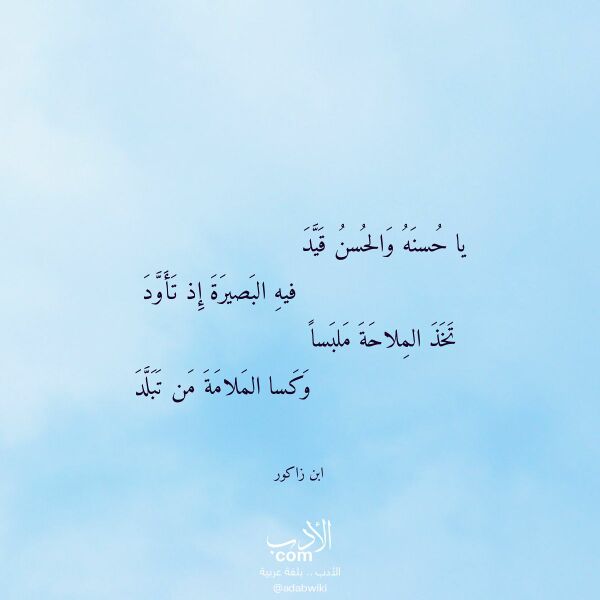 يا حُسنَهُ وَالحُسنُ قَيَّدَ
فيهِ البَصيرَةَ إِذ تَأَوَّدَ
تَخَذَ المِلاحَةَ مَلبَساً
وَكَسا المَلامَةَ مَن تَبَلَّدَ
ابن زاكور
الأدب
com
الأدب .. بلغة عربية
@adabwiki